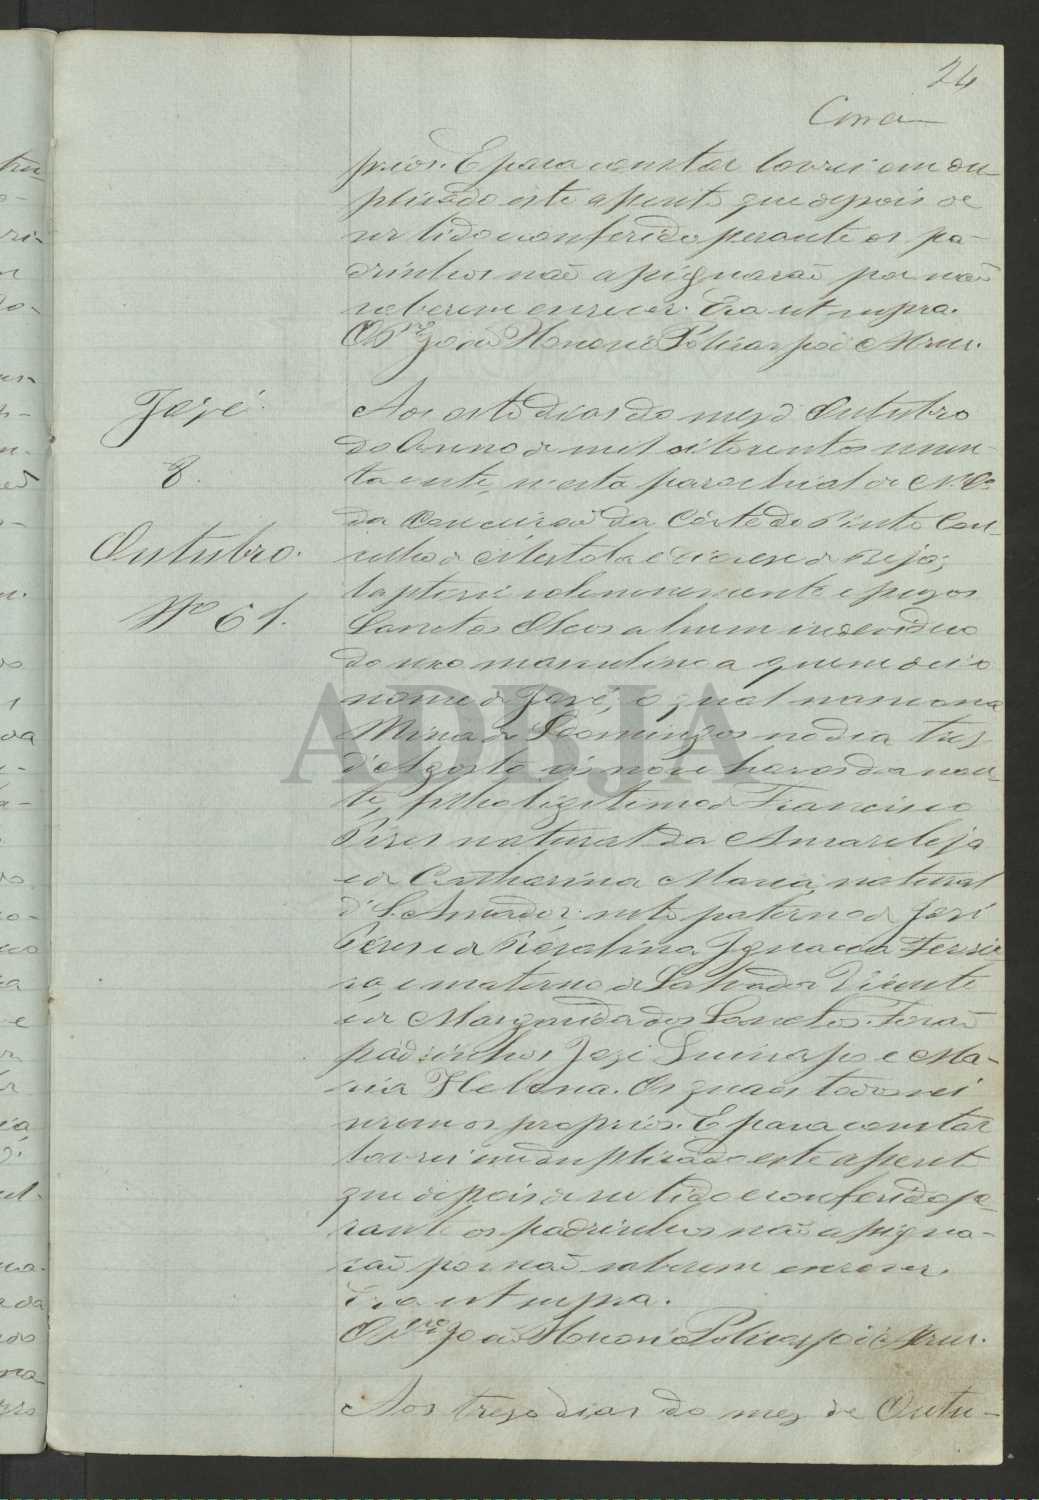 24
Correa
prios. E para constar lavrei em du-
plicado este assento que depois de
ser lido e conferido perante os pa-
drinhos não assignarão por não
saberem escrever. Era ut supra.
O Pre João Honorio Policarpo
José.
8.
Outubro.
Nº 61.
Aos oito dias do mez d'Outubro
do anno de mil oitocentos
n'esta parochial de N. Sa
da Conceição da Côrte do Pinto Con-
celho de Mertola e Diocese de Beja;
baptisei solemnemente e puz os
Sanctos Oleos a hum individuo
do sexo masculino a quem dei o
nome de José, o qual nasceo na
Mina de S. Domingos no dia tres
d'Agosto ás nove horas da nou-
te, filho ligitimo de Francisco
Pires natural da Amareleja
e de Catharina Maria, natural
d'S. Amador; neto paterno de José
Peres e de Ignacia Ferrei-
ra, e materno de Salvador Vicente
e de Margarida dos Sanctos. Forão
padrinhos José e Ma-
ria Helena. Os quaes todos sei
serem os proprios. E para constar
lavrei em duplicado este assento
que depois de ser lido e conferido pe-
rante os padrinhos não assigna-
rão por não saberem escrever.
Era ut supra.
O Pre João Honorio Policarpo
Aos treze dias do mez de Outu-
ADBJA